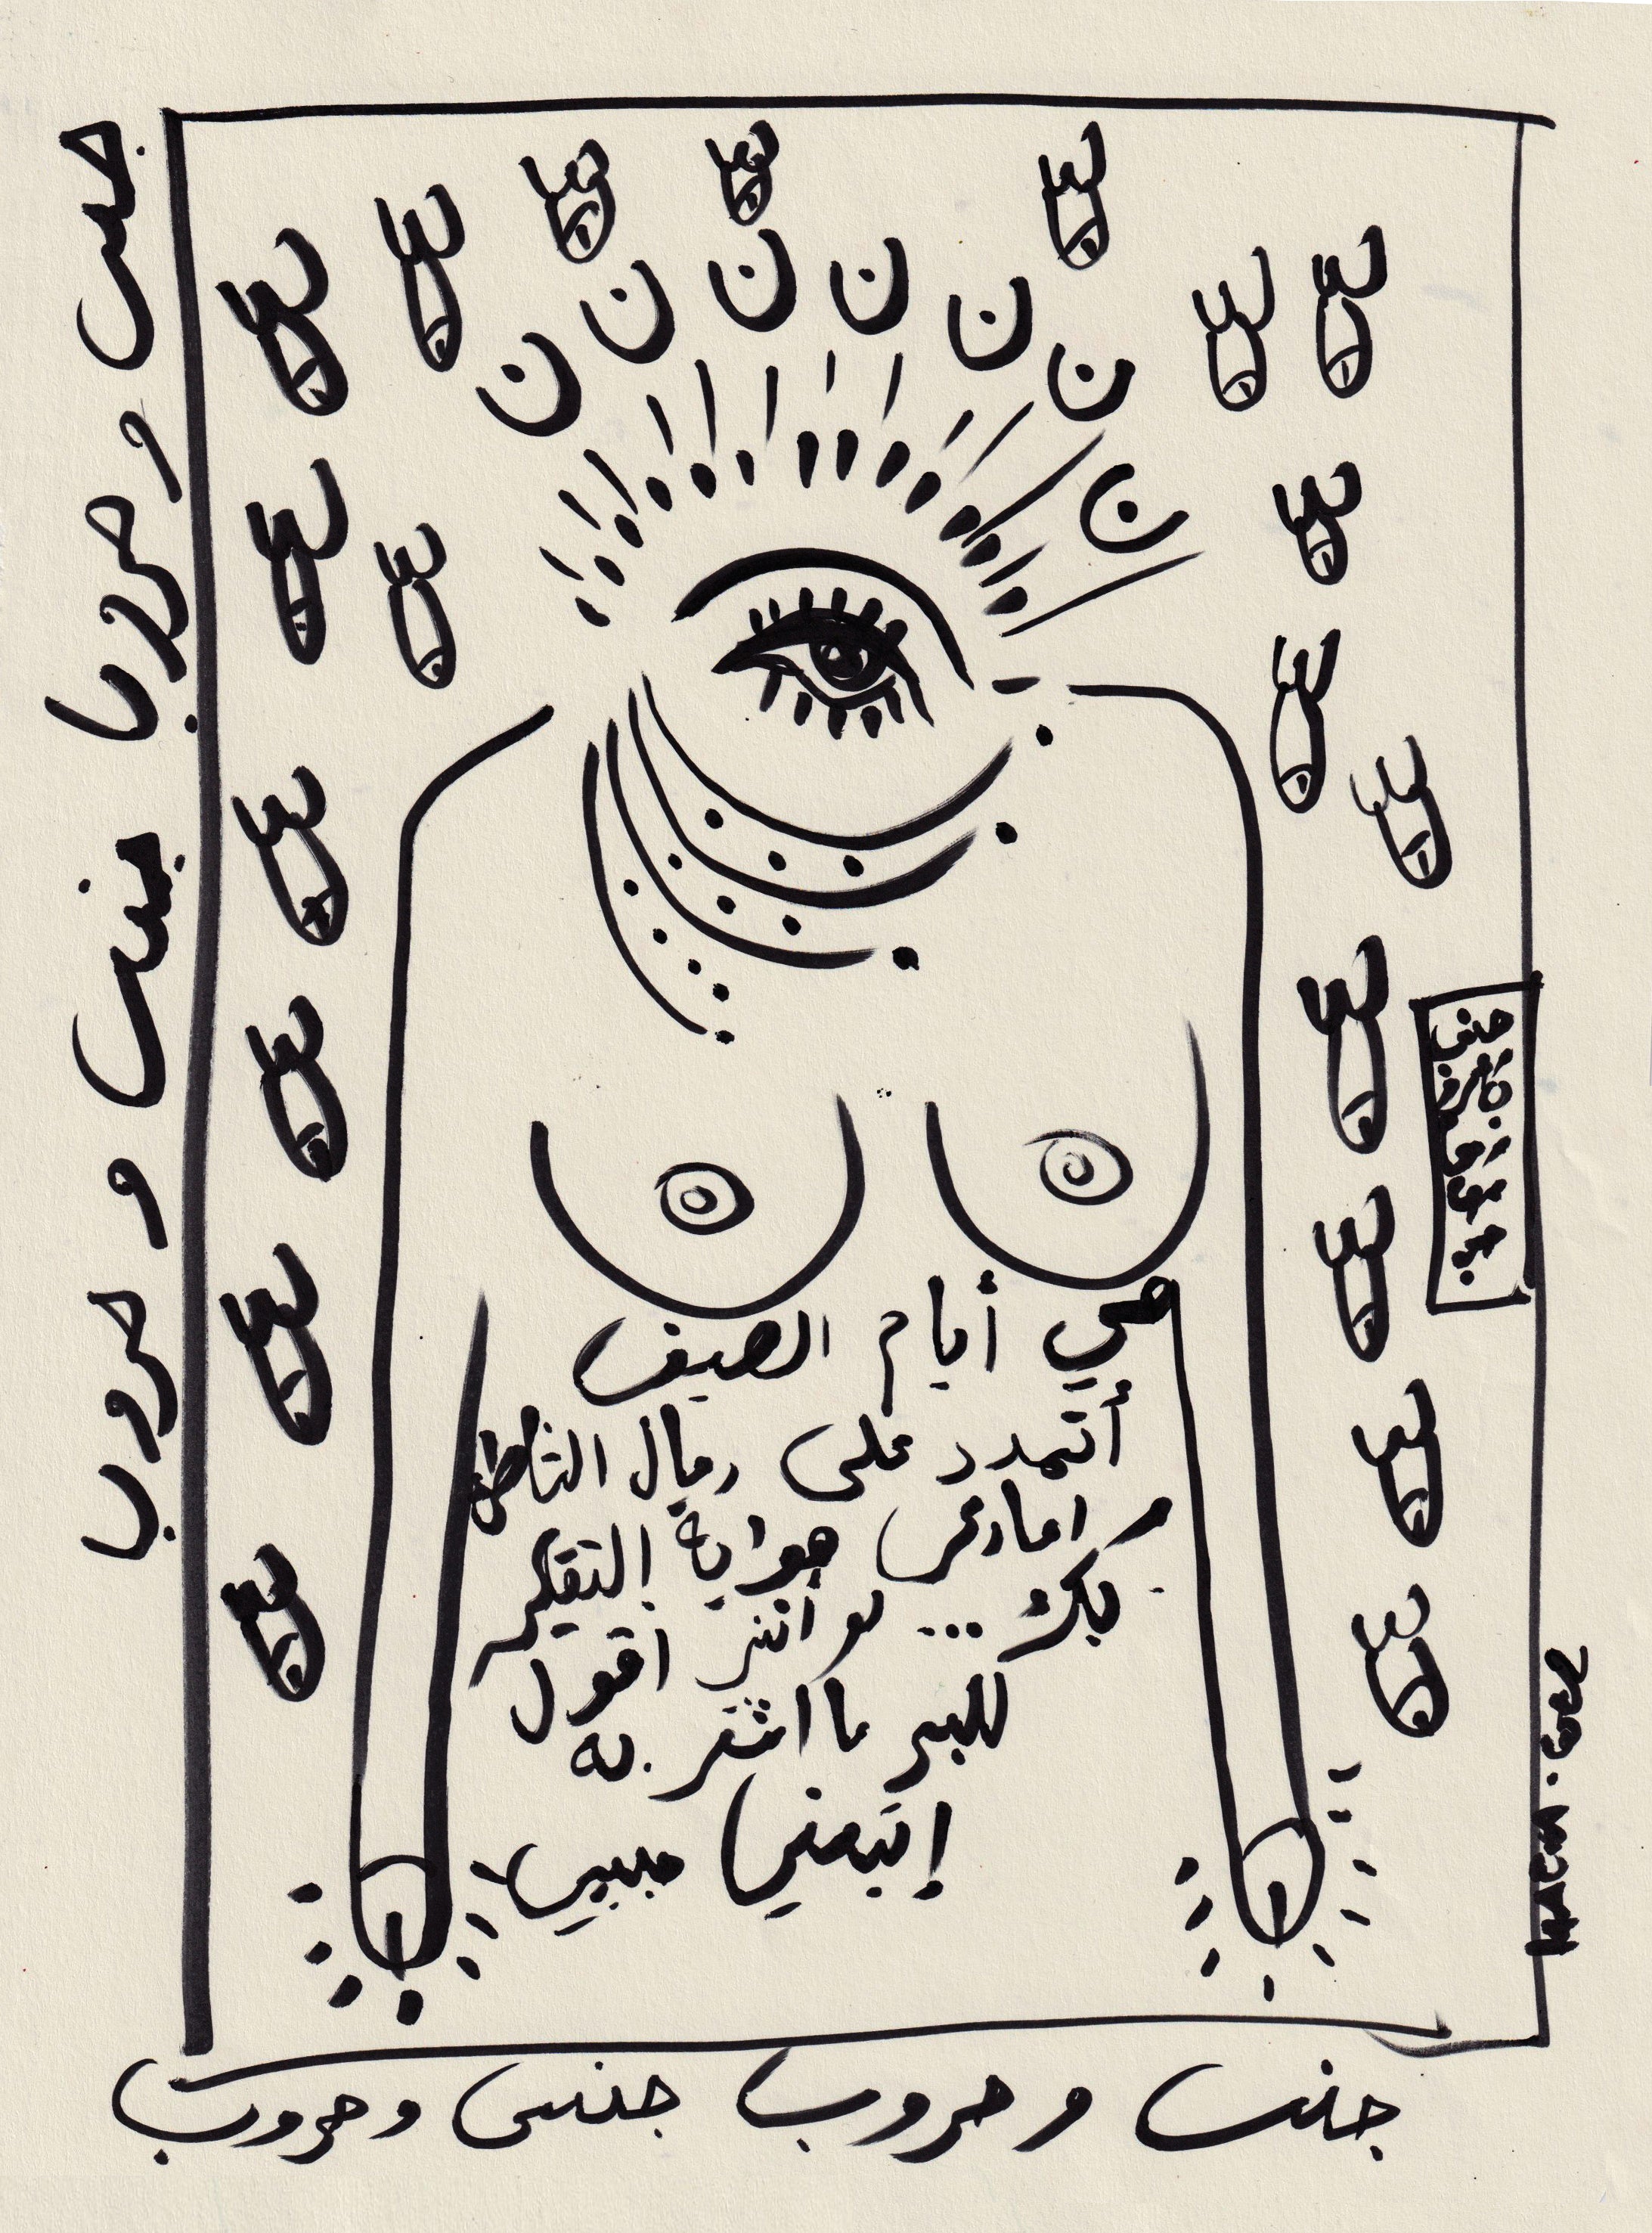 جنس و حروب جنس و حروب
ن ن ن ن ن ن ن
في أيام الصيف
أتمدد على رمال الشاطئ
و امارس هواية التفكير
بك... لو أنني اقول
للبحر ما اشعر به
إتبعني حبيبي
جنس و حروب جنس و حروب